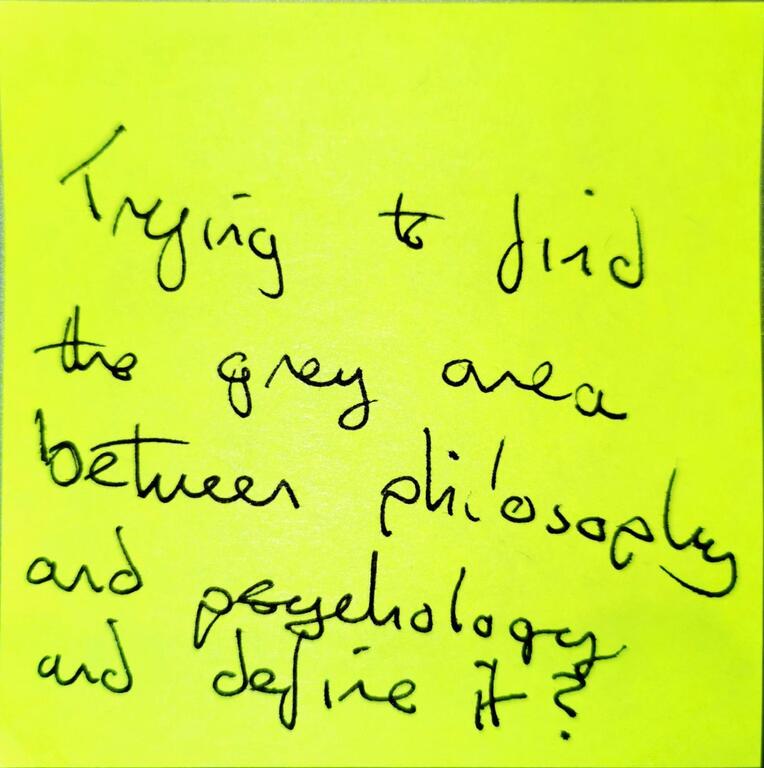 Trying to find
the grey area
between philosophy
and psychology
and define it?